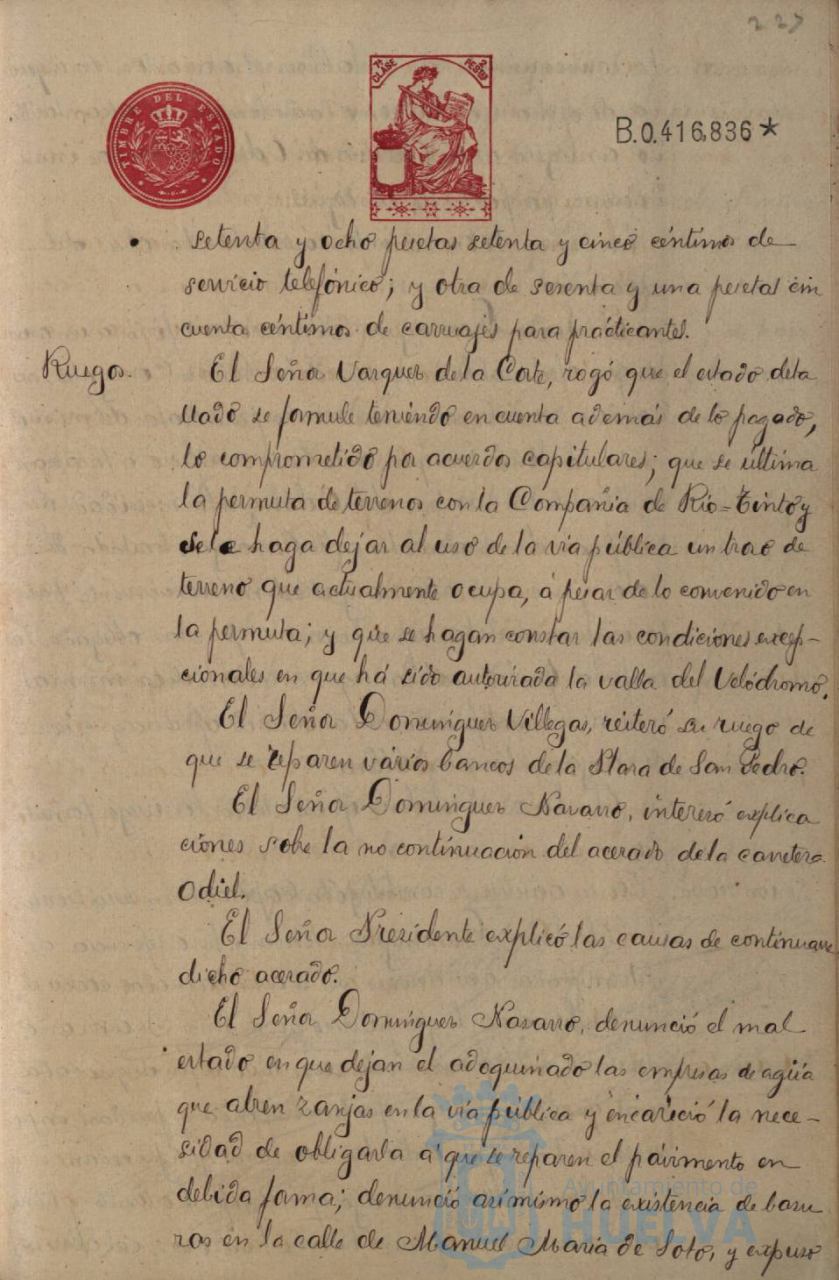 227
TIMBRE DEL ESTADO
1ª CLASE 2 PESETAS
B.0.416,836*
setenta y ocho pesetas setenta y cinco céntimos de
servicio telefónico; y otra de sesenta y una pesetas cin
cuenta céntimos de carruajes para prácticantes.
Ruegos.
El Señor Vazquez de la Corte, rogó que el estado deta
llado se formule teniendo en cuenta además de lo pagado,
lo comprometido por acuerdos capitulares; que se última
la permuta de terrenos con la Compañia de Rio-Tinto y
se le haga dejar al uso de la via pública un trozo de
terreno que actualmente ocupa, á pesar de lo convenido en
la permuta; y que se hagan constar las condiciones excep-
cionales en que há sido autorizada la valla del Velódromo.
El Señor Dominguez Villegas, reiteró su ruego de
que se reparen vários bancos de la Plaza de San Pedro.
El Señor Dominguez Navarro, interesó explica
ciones sobre la no continuación del acerado de la carretera
Odiel.
El Señor Presidente explicó las causas de continuarse
dicho acerado.
El Señor Dominguez Navarro, denunció el mal
estado en que dejan el adoquinado las empresas de agua
que abren zanjas en la via pública y encareció la nece-
sidad de obligarla á que se reparen el pavimento en
debida forma; denunció asimismo la existencia de basu
ras en la calle de Manuel Maria de Soto, y expuso
Ayuntamiento de
HUELVA